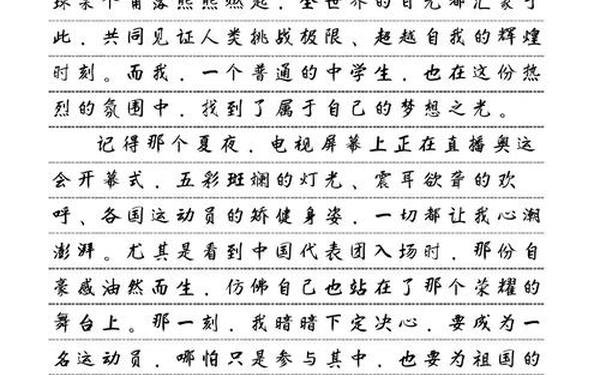 球某个角落熊熊燃起，全世界的目光都汇聚于
此，共同见证人类挑战极限、超越自我的辉煌
时刻。而我，一个普通的中学生，也在这份热
烈的氛围中，找到了属于自己的梦想之光。
记得那个夏夜，电视屏幕上正在直播奥运
会开幕式，五彩斑斓的灯光、震耳欲聋的欢
呼、各国运动员的矫健身姿，一切都让我心潮
澎湃。尤其是看到中国代表团入场时，那份自
豪感油然而生，仿佛自己也站在了那个荣耀的
舞台上。那一刻，我暗暗下定决心，要成为一
名运动员，哪怕只是参与其中，也要为祖国的